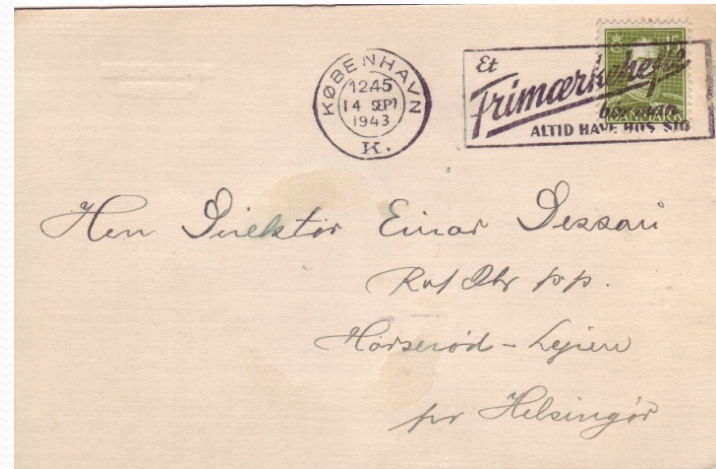 KØBENHAVN
1245
14 SEPT
1943
K.
Et
Frimærkehefte
bør man
ALTID HAVE HOS SIG
15
DANMARK
Herr Direktør Einar Dessau
Horserød - Lejren
pr Helsingør